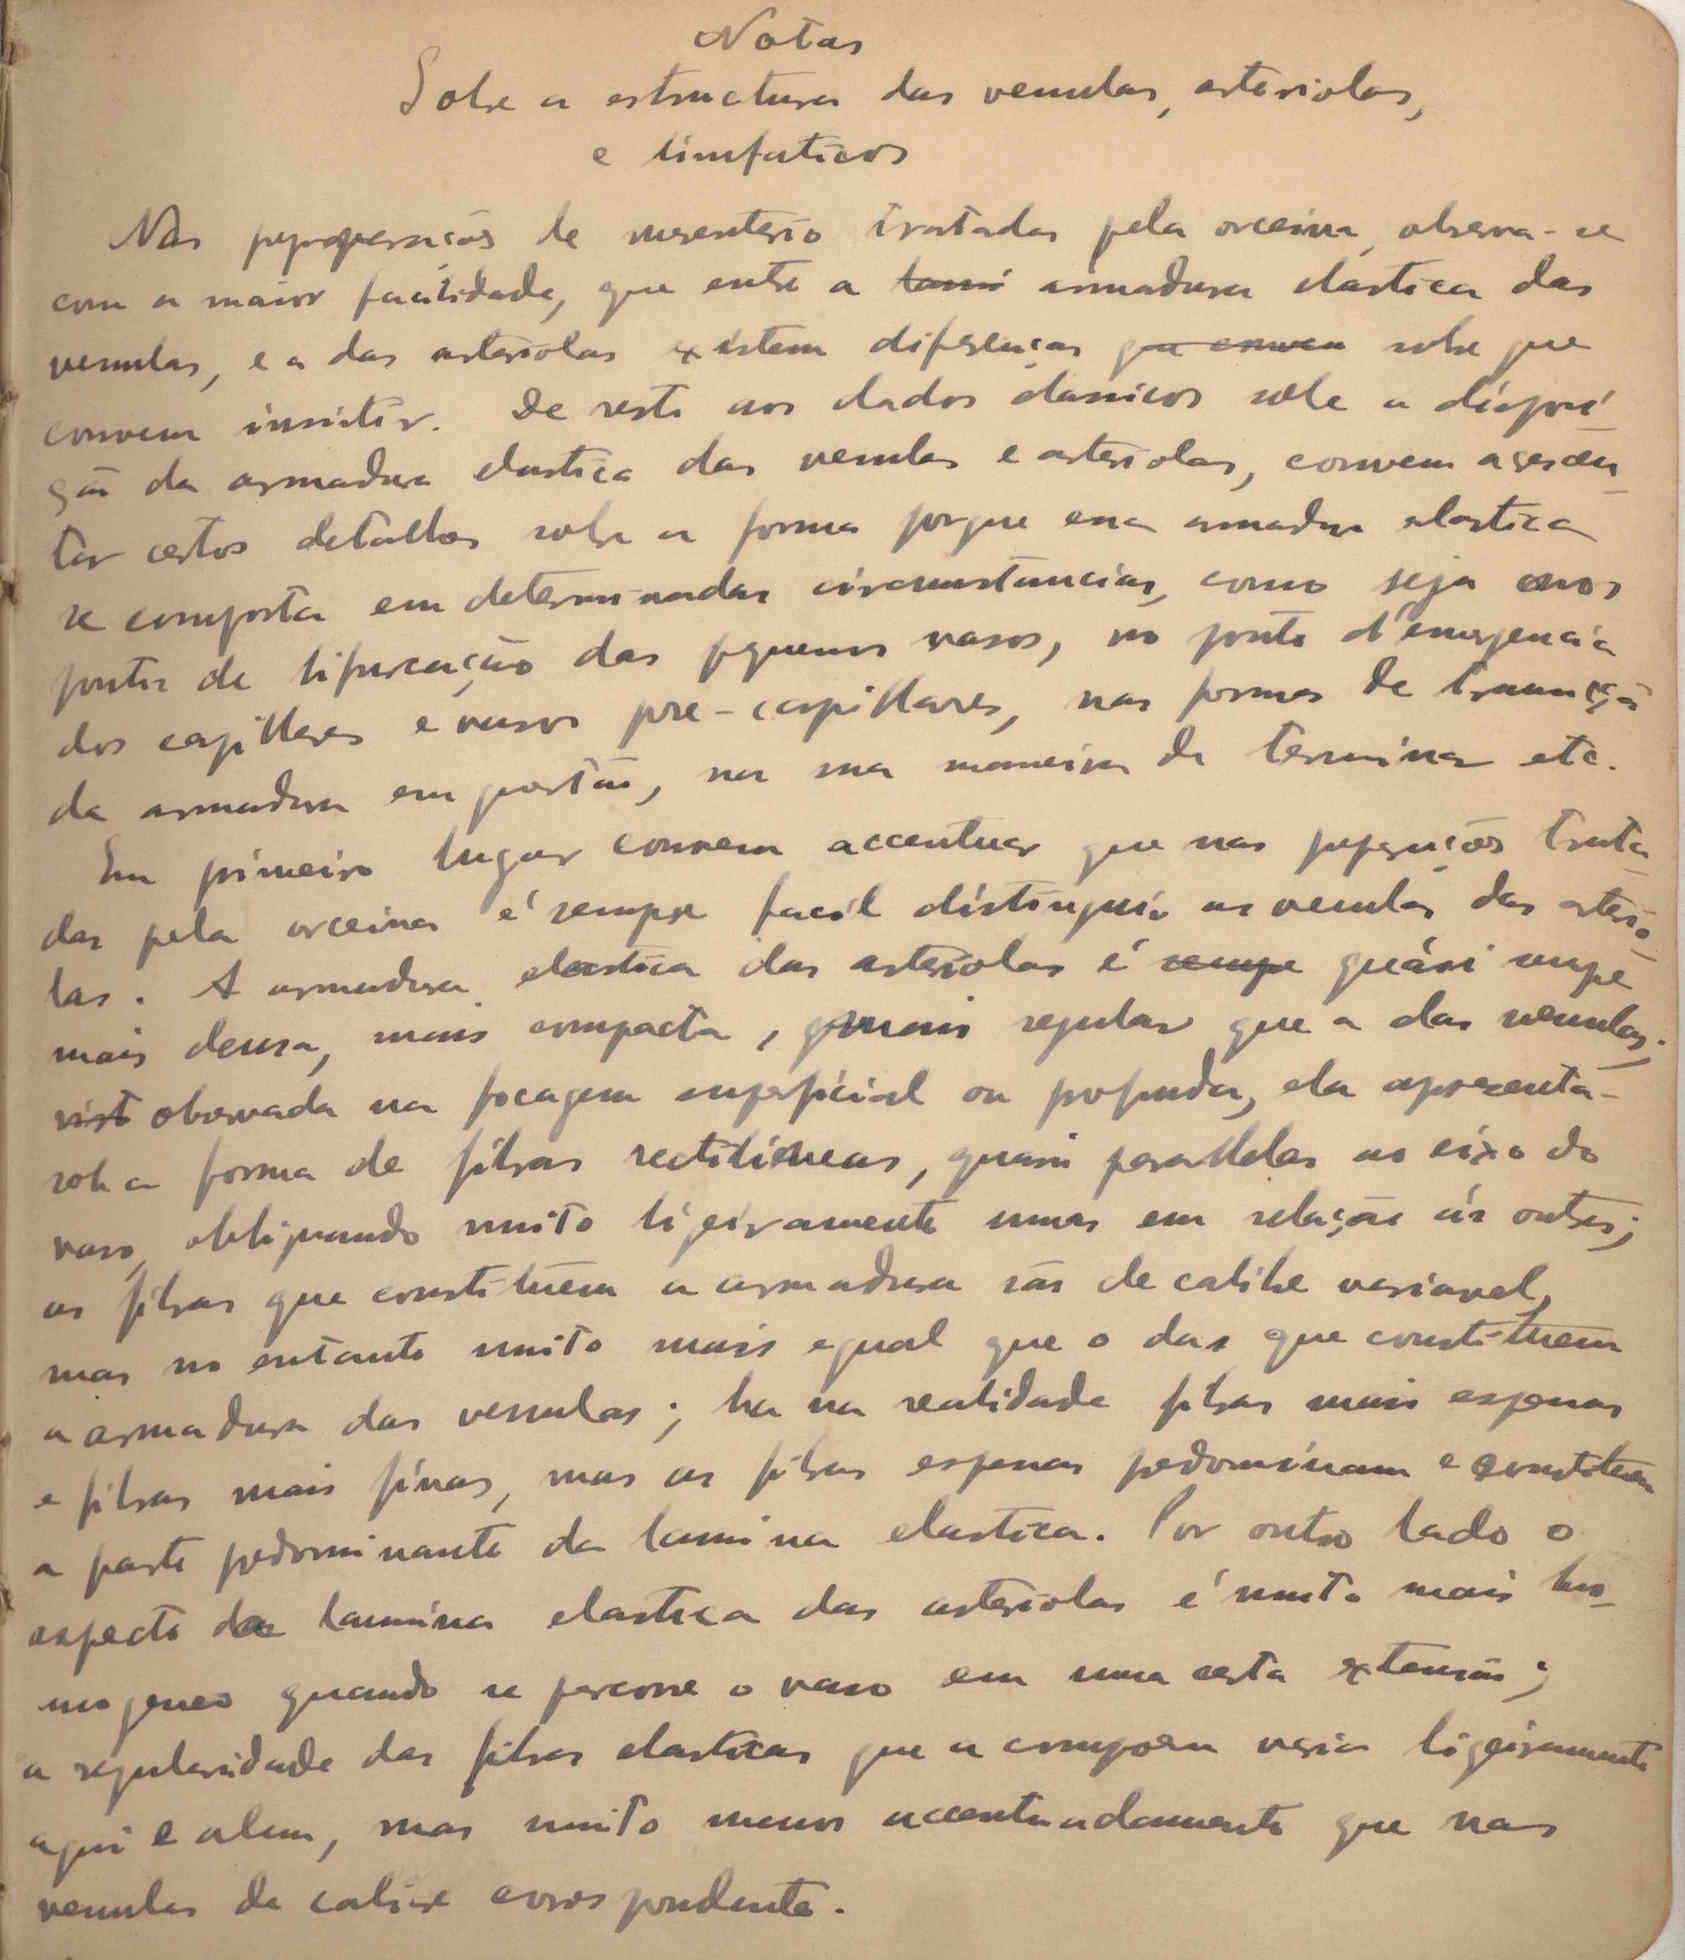 Notas
Sobre a estructura das venulas, arteriolas,
e limfaticos
Nas preparações de mesenterio tratadas pela orceina, observa-se
com a maior facilidade, que entre a lami armadura elastica das
venulas, e a das arteriolas existem diferenças que convem sobre que
convem insistir. De resto aos dados classicos sobre a disposi
ção da armadura elastica das venulas e arteriolas, convem acrescen-
tar certos detalhes sobre a forma porque essa armadura elastica
se comporta em determinadas circumstancias, como seja nos
pontos de bifurcação dos pequenos vasos, no ponto d'emergencia
dos capillares e vasos pre-capillares, nas formas de transição
da armadura em questão, na sua maneira de terminar etc.
Em primeiro lugar convem accentuar que nas preparações trata-
das pela orceina é sempre facil distinguir as venulas das arterio-
las. A armadura elastica das arteriolas é sempre quási sempre
mais densa, mais compacta, mais regular que a das venulas;
vist observada na focagem superficial ou profunda, ela apresenta-
sob a forma de fibras rectilineas, quasi parallelas ao eixo do
vaso, obliquando muito ligeiramente umas em relação ás outras;
as fibras que constituem a armadura são de calibre variavel,
mas no entanto muito mais egual que o das que constituem
a armadura das venulas; ha na realidade fibras mais espessas
e fibras mais finas, mas as fibras espessas predominam e constituem
a parte predominante da lamina elastica. Por outro lado o
aspecto da lamina elastica das arteriolas é muito mais ho-
mogeneo quando se percorre o vaso em uma certa extensão;
a regularidade das fibras elasticas que a compõem varia ligeiramente
aqui e alem, mas muito menos accentuadamente que nas
venulas de calibre correspondente.